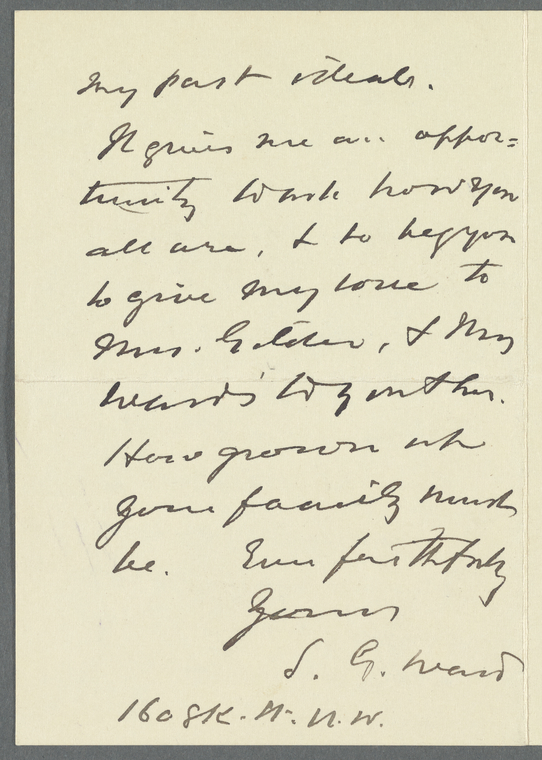 my past ideals.
It gives me an oppor=
tunity to ask how you
all are, & to beg you
to give my love to
Mrs. Gilder, & Mrs
Ward's to you both.
How grown up
your family must
be. Ever faithfully
Yours
S. G. Ward
1608 K. St. N.W.